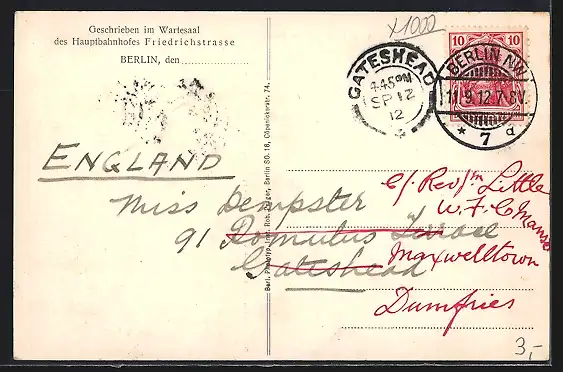 Geschrieben im Wartesaal
des Hauptbahnhofes Friedrichstrasse
BERLIN, den
x1000
10 10
GATESHEAD
4.45 PM
SP 12
12
BERLIN NW
11.9.12.7-8V.
* 7 d
ENGLAND
Miss Dempster
91 Romulus
Gateshead
C/o Rev. Jm Little
W. F. C. Manse
Maxwelltown
Dumfries
Berlin SO. 16, Köpenickerstr. 74.
3,-